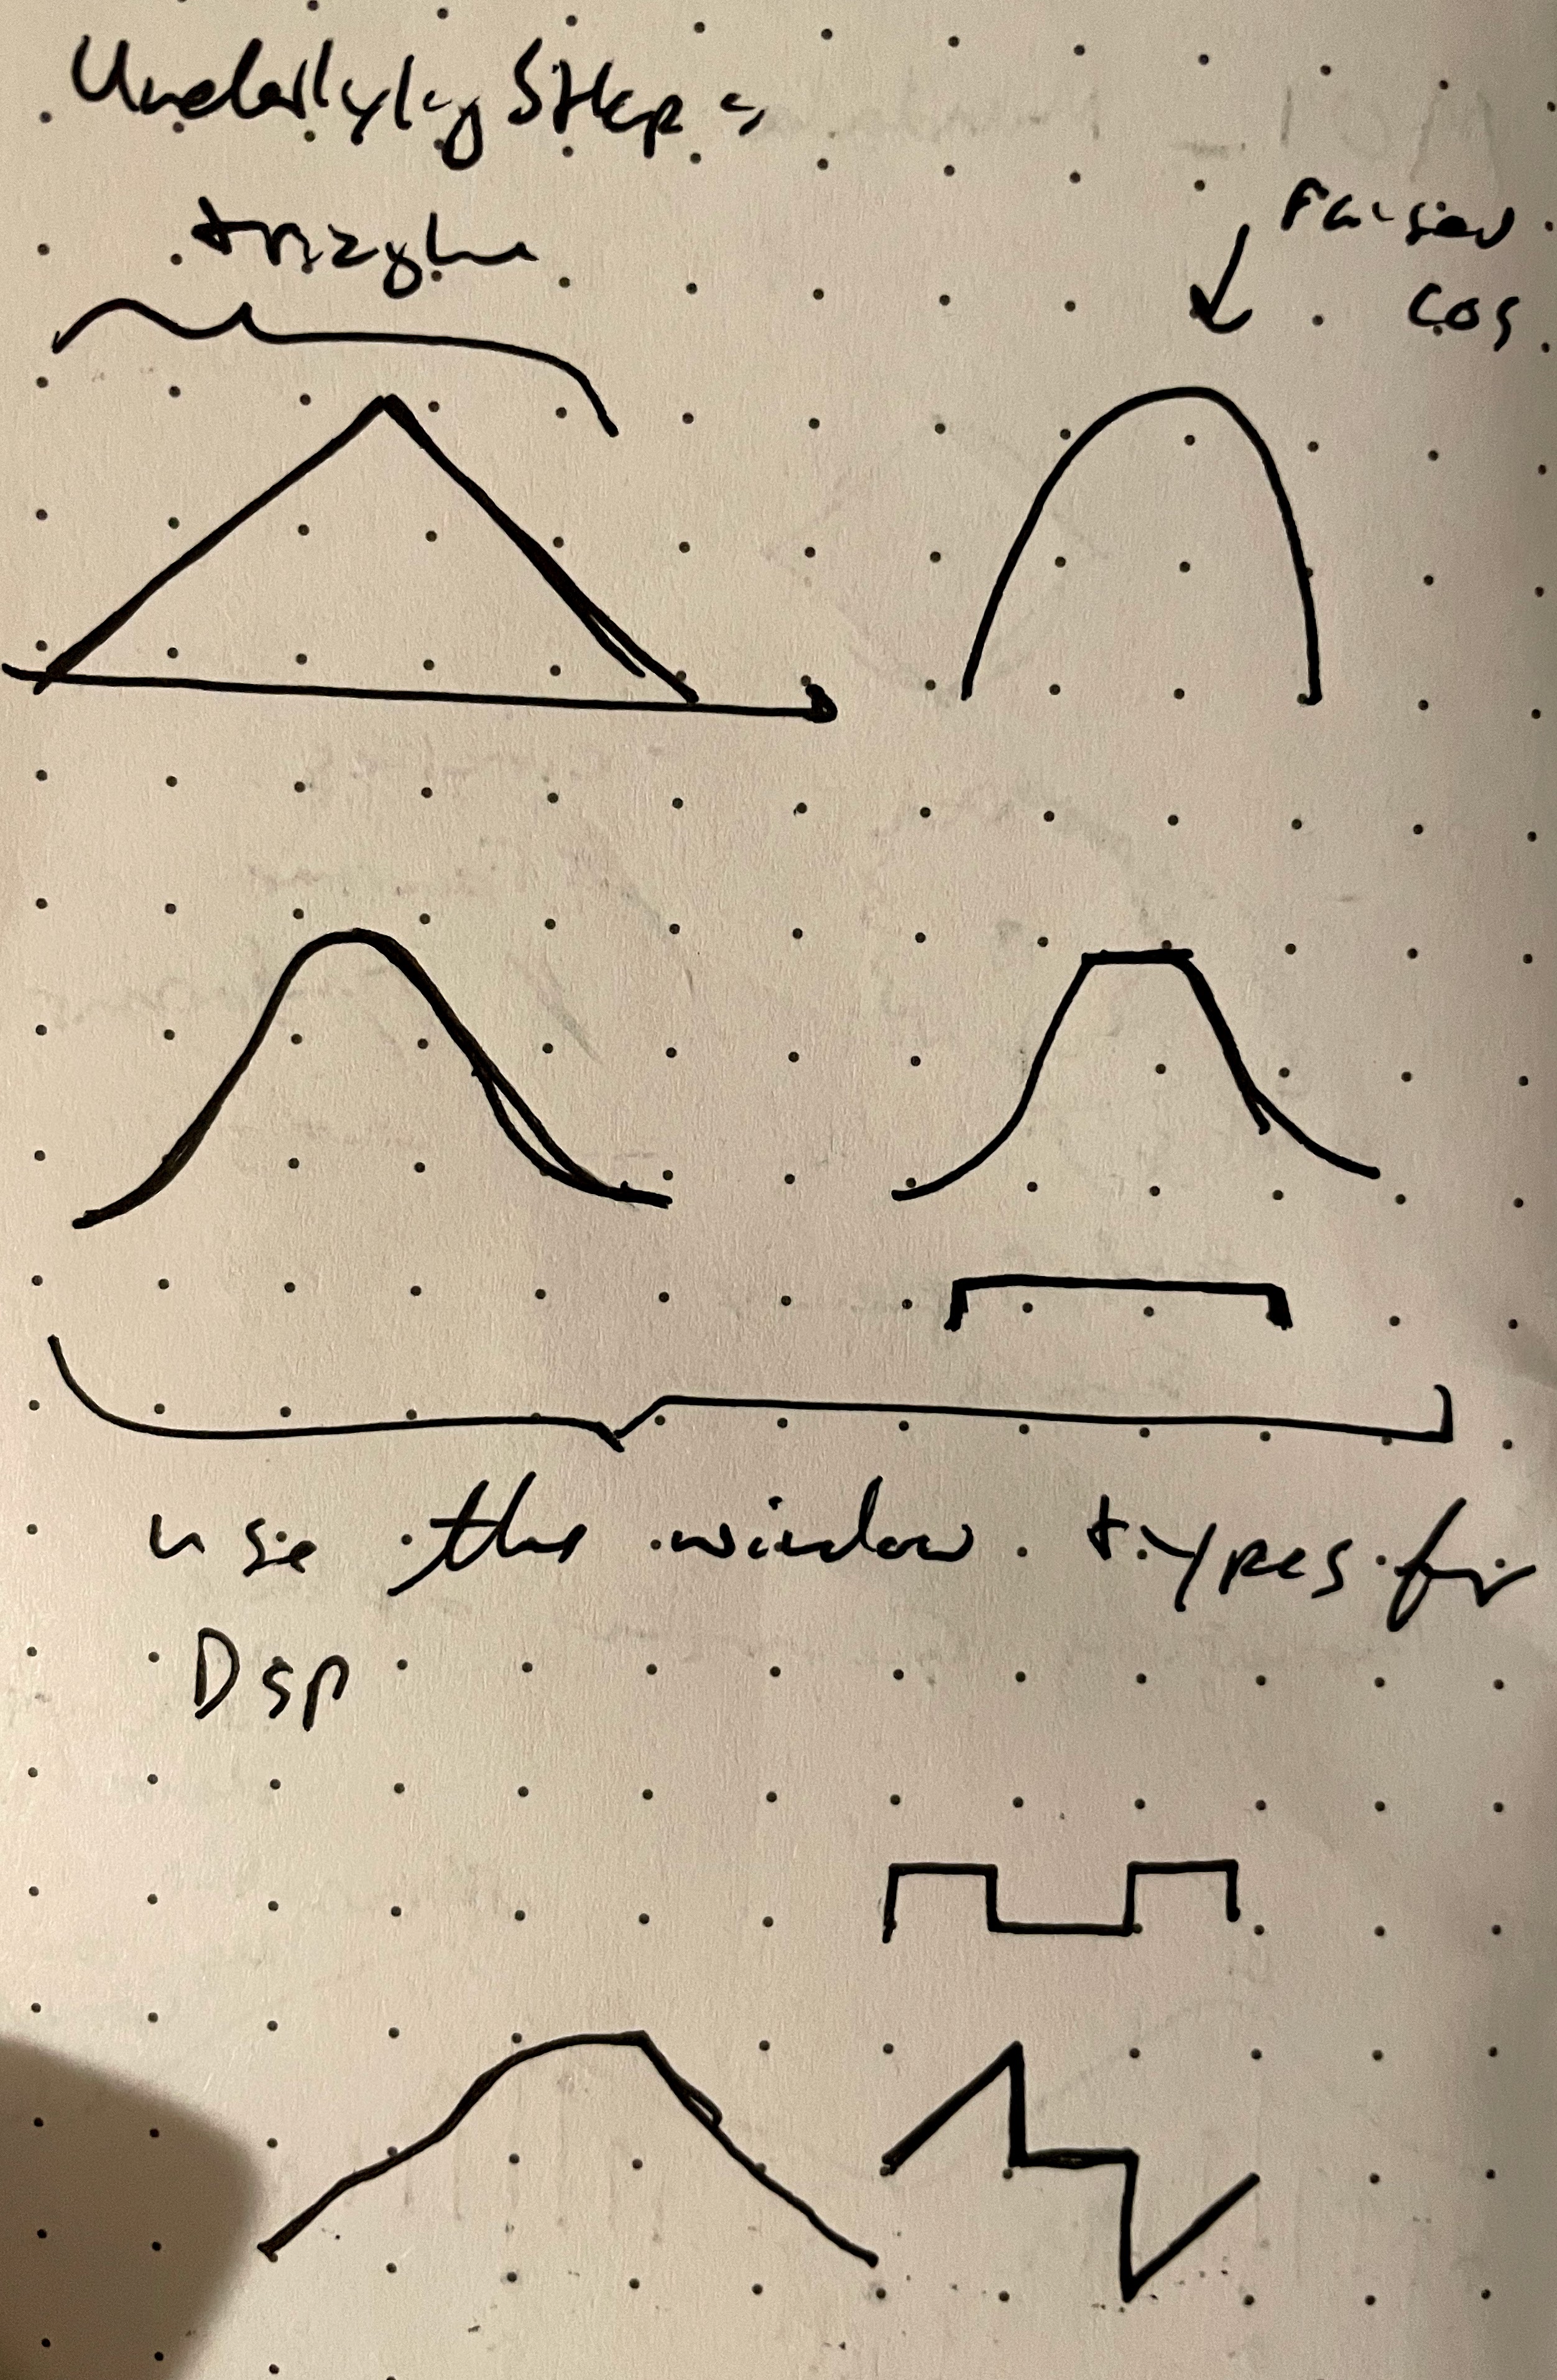 Underlying Shape
triangle
raised
cos
use the window types for
Dsp